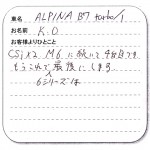 車名 ALPINA B7 turbo/1
お名前 K.O
お客様よりひとこと
CSi×2 M6に続いて4台目です
もうこれで最後にします
6シリーズは